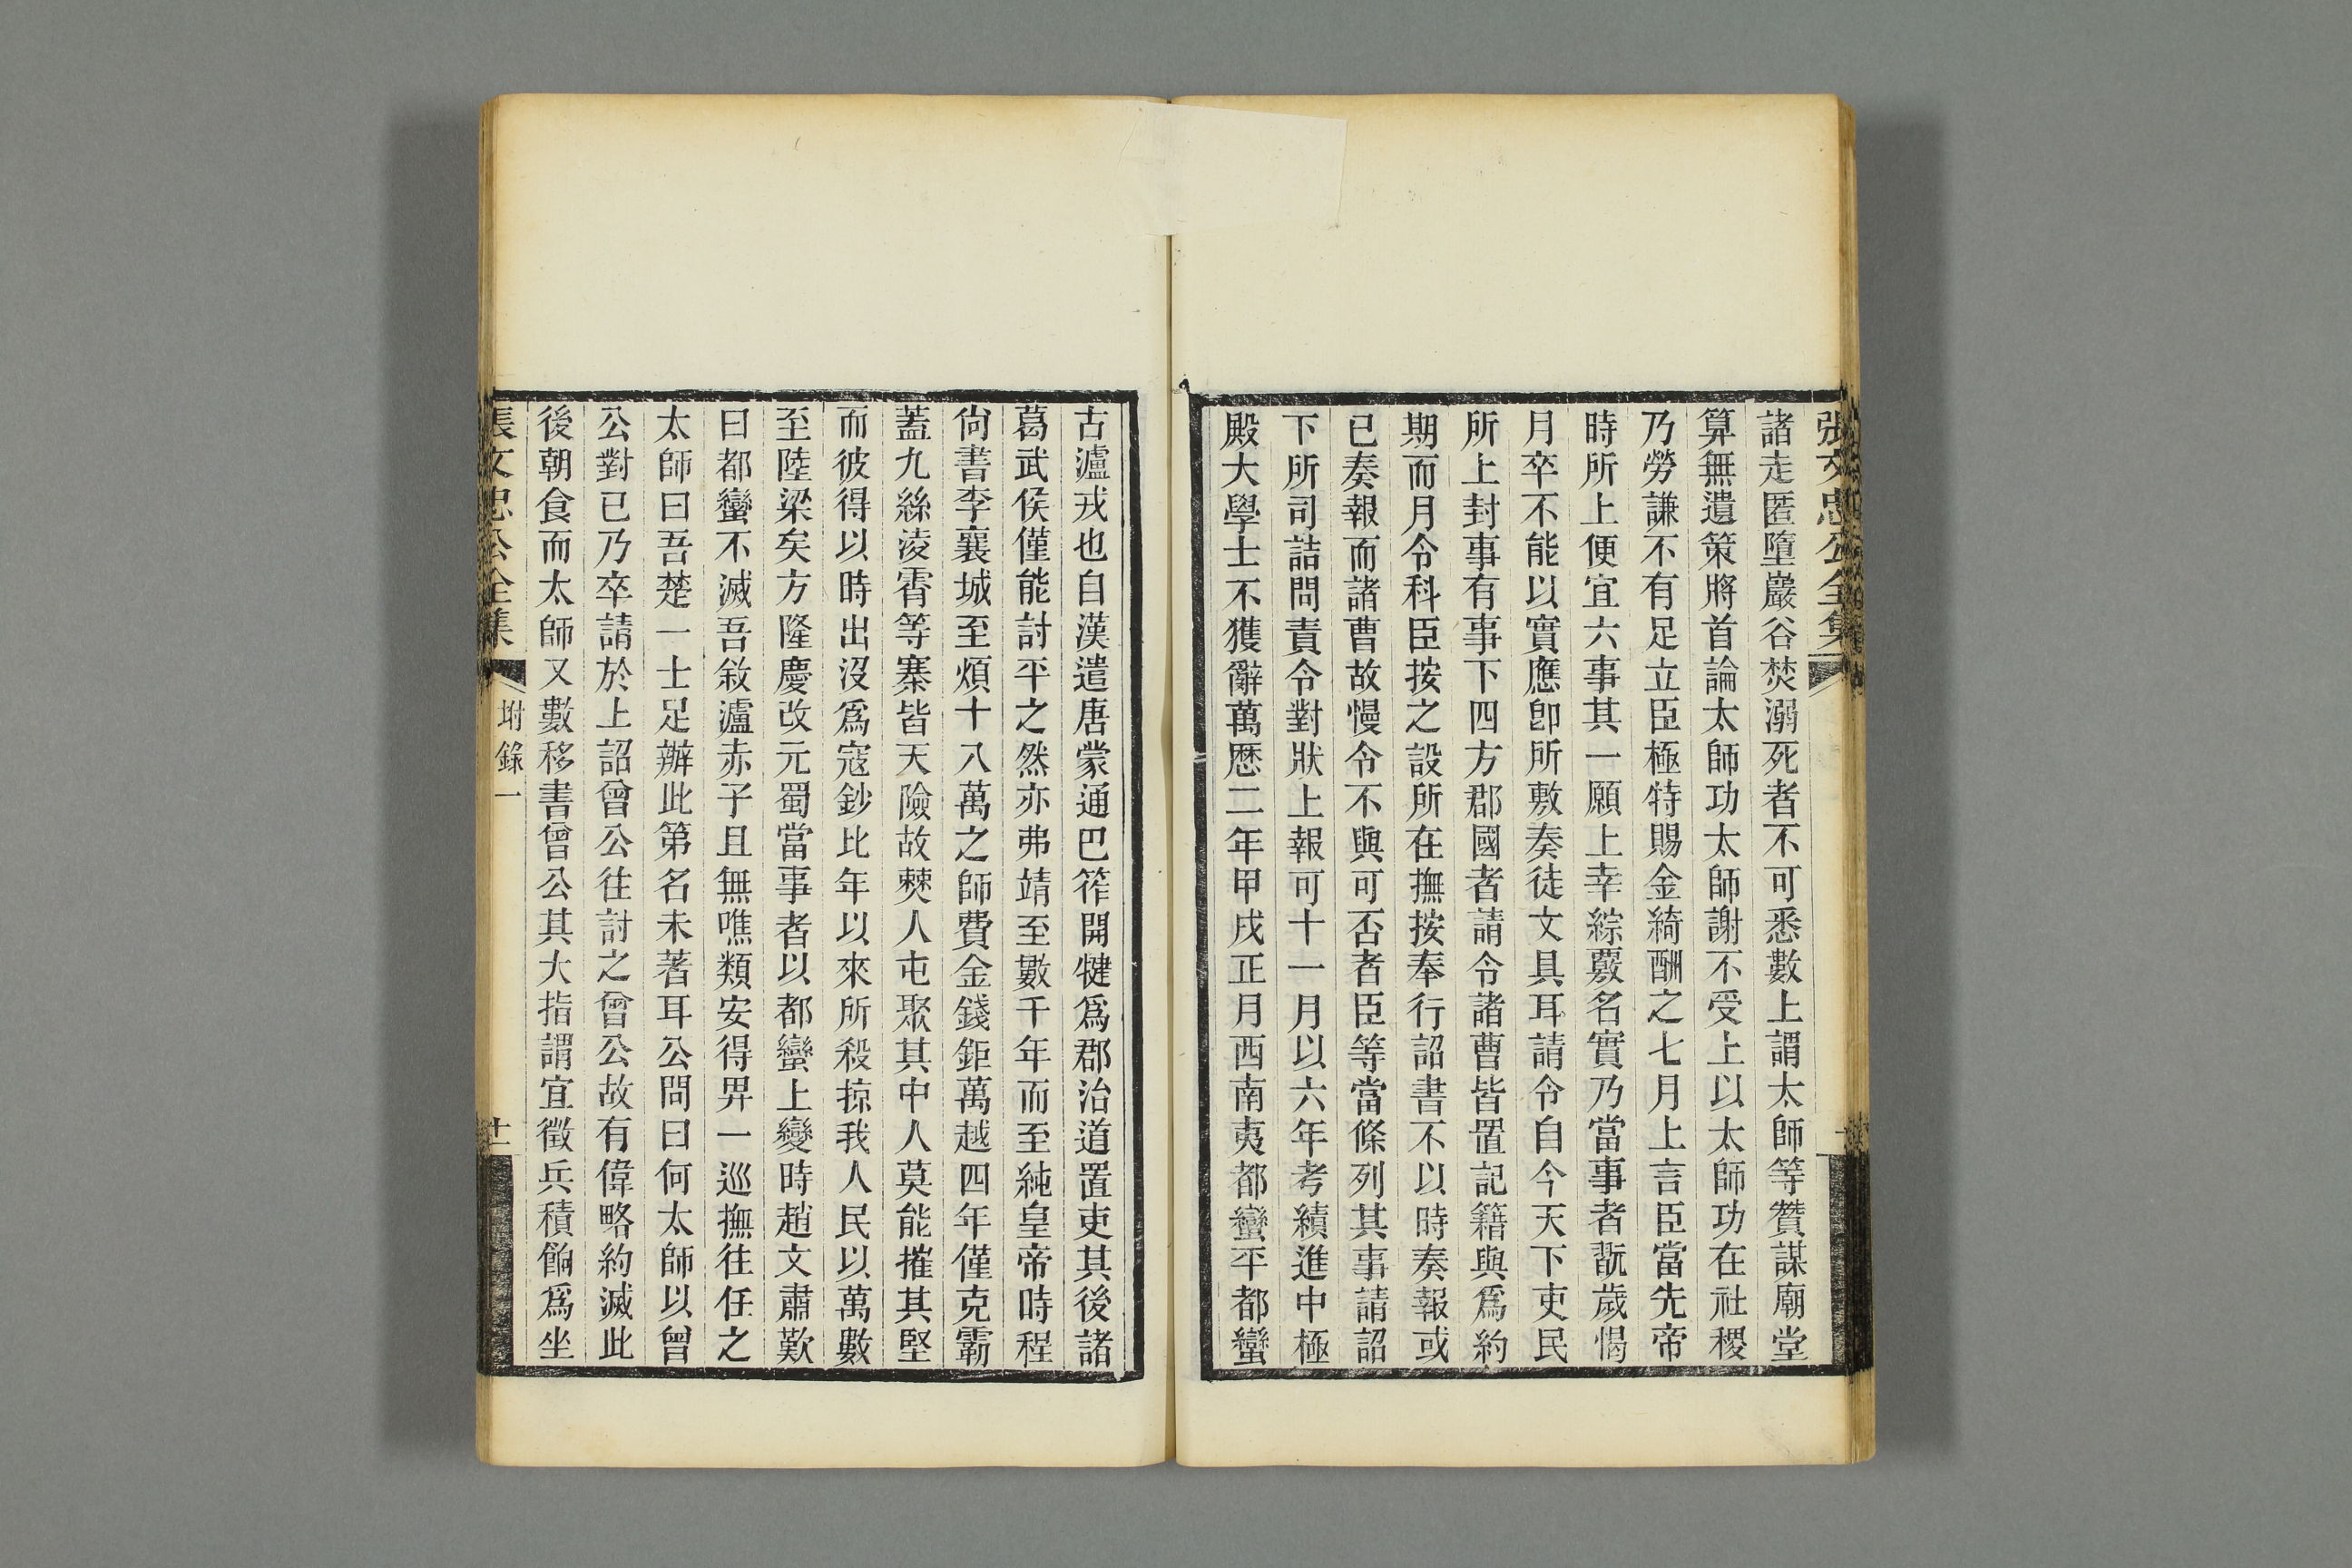 張文忠公全集
諸走匿墮巖谷焚溺死者不可悉數上謂太師等贊謀廟堂
算無遺策將首論太師功太師謝不受上以太師功在社稷
乃勞謙不有足立臣極特賜金綺酬之七月上言臣當先帝
時所上便宜六事其一願上幸綜覈名實乃當事者翫歲愒
月卒不能以實應卽所敷奏徒文具耳請令自今天下吏民
所上封事有事下四方郡國者請令諸曹皆置記籍與爲約
期而月令科臣按之設所在撫按奉行詔書不以時奏報或
已奏報而諸曹故慢令不與可否者臣等當條列其事請詔
下所司詰問責令對狀上報可十一月以六年考績進中極
殿大學士不獲辭萬歷二年甲戌正月西南夷都蠻平都蠻
古瀘戎也自漢遣唐蒙通巴筰開犍爲郡治道置吏其後諸
葛武侯僅能討平之然亦弗靖至數千年而至純皇帝時程
尙書李襄城至煩十八萬之師費金錢鉅萬越四年僅克霸
蓋九絲淩霄等寨皆天險故僰人屯聚其中人莫能摧其堅
而彼得以時出沒爲寇鈔比年以來所殺掠我人民以萬數
至陸梁矣方隆慶改元蜀當事者以都蠻上變時趙文肅歎
曰都蠻不滅吾敘瀘赤子且無噍類安得畀一巡撫往任之
太師曰吾楚一士足辦此第名未著耳公問曰何太師以曾
公對已乃卒請於上詔曾公往討之曾公故有偉略約滅此
後朝食而太師又數移書曾公其大指謂宜徵兵積餉爲坐
張文忠公全集 附錄一 十一